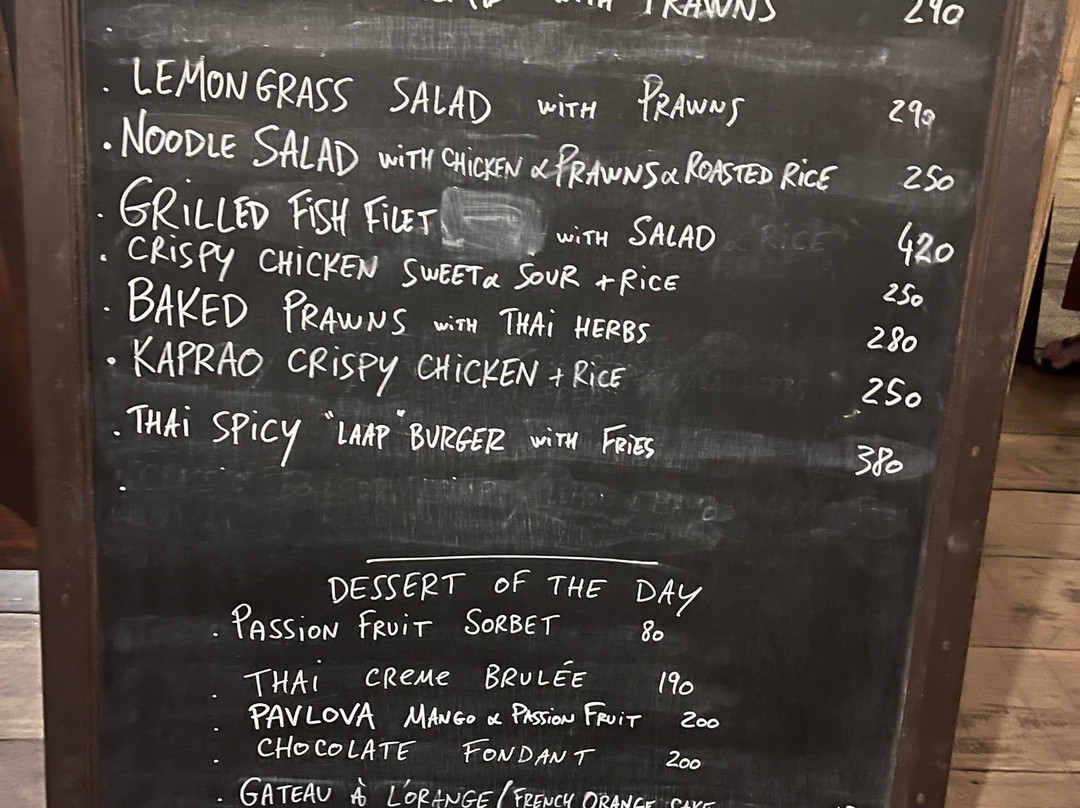 WITH PRAWNS 290
. LEMONGRASS SALAD WITH PRAWNS 290
. NOODLE SALAD WITH CHICKEN & PRAWNS & ROASTED RICE 250
. GRILLED FISH FILET WITH SALAD & RICE 420
. CRISPY CHICKEN SWEET & SOUR + RICE 250
. BAKED PRAWNS WITH THAI HERBS 280
. KAPRAO CRISPY CHICKEN + RICE 250
. THAI SPICY "LAAP" BURGER WITH FRIES 380
.
DESSERT OF THE DAY
. PASSION FRUIT SORBET 80
. THAI CREME BRULÉE 190
. PAVLOVA MANGO & PASSION FRUIT 200
. CHOCOLATE FONDANT 200
. GATEAU À L'ORANGE / FRENCH ORANGE CAKE